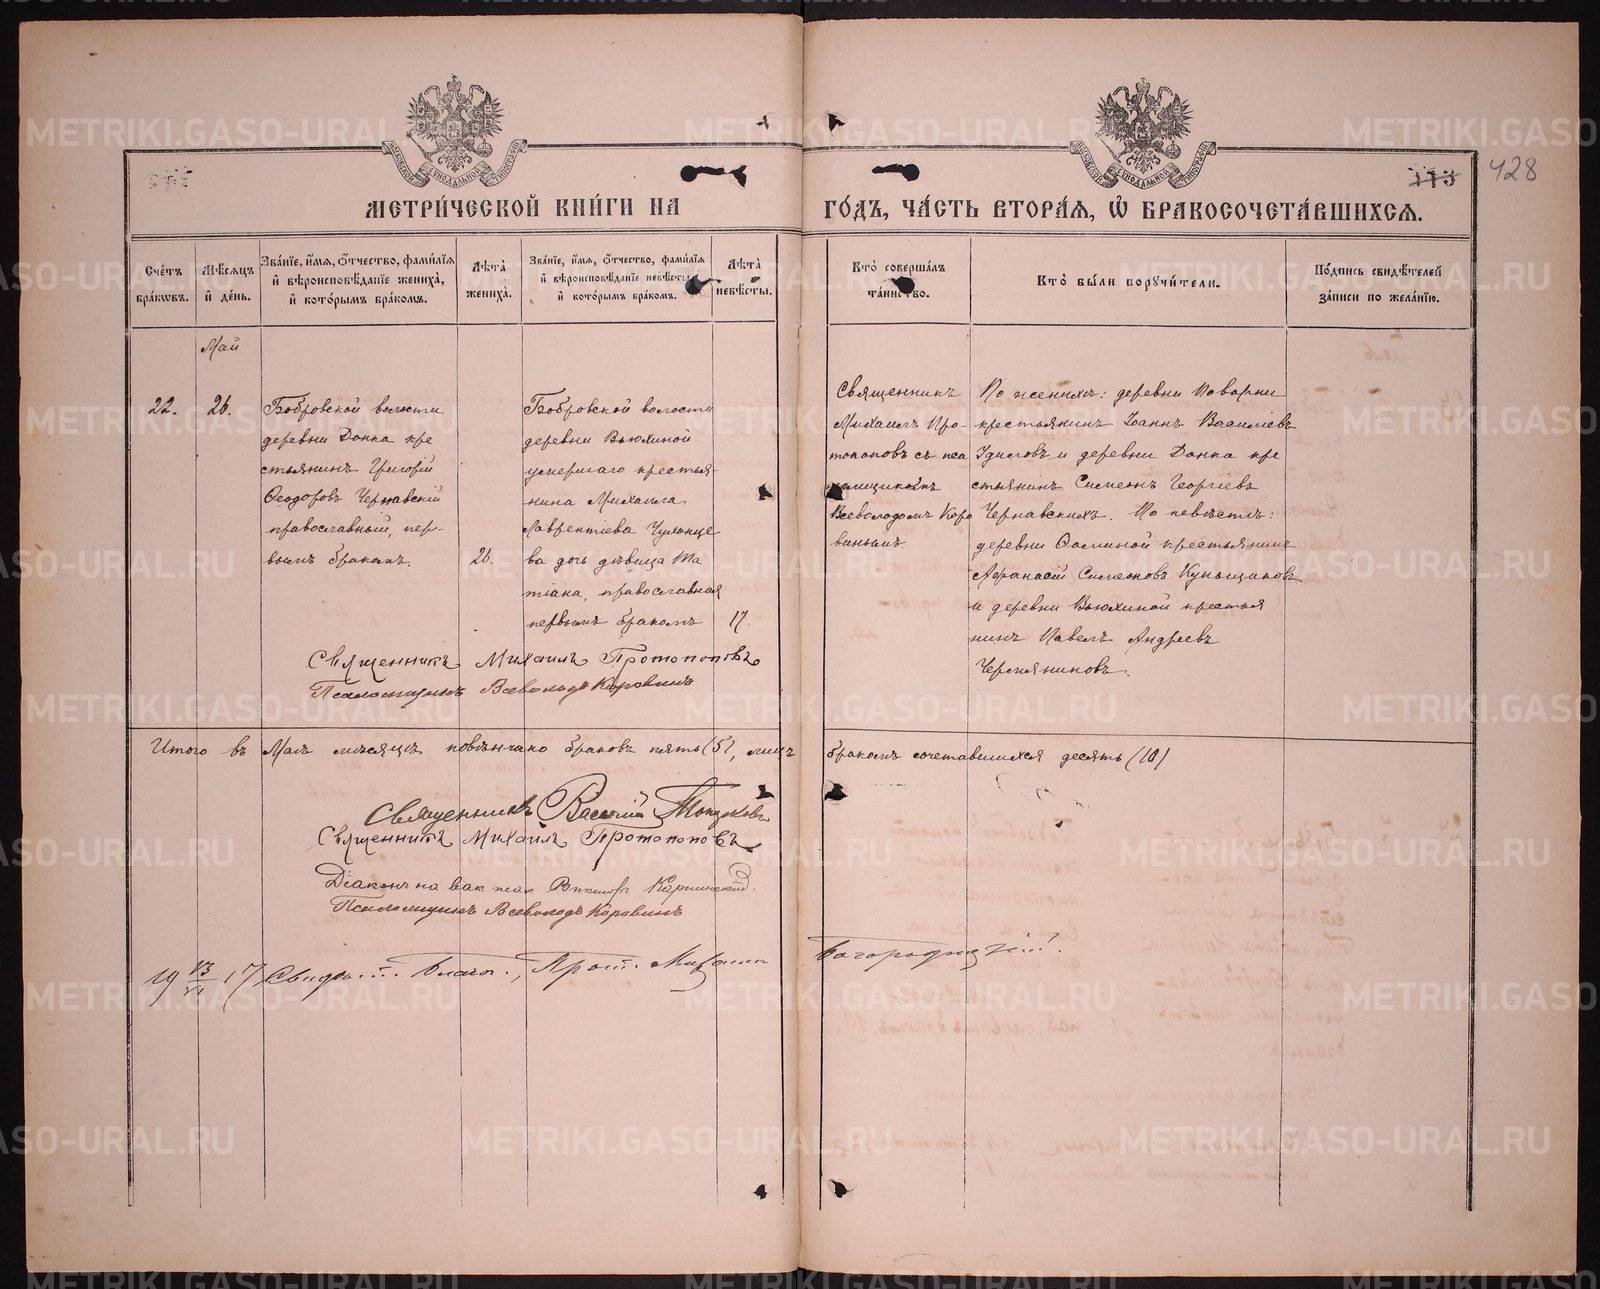 428
МЕТРИ́ЧЕСКОЙ КНИ́ГИ НА ГО́ДЪ, ЧА́СТЬ ВТОРА́Я, Ѡ҆ БРАКОСОЧЕТА́ВШИХСЯ.
Сче́тъ бра́кѡвъ.
Мѣ́сяцъ и҆ де́нь.
Зва́нїе, и҆́мя, ѻ҆́тчество, фами́лїя и҆ вѣроисповѣ́данїе жениха̀, и҆ кото́рымъ бра́комъ.
Лѣ́та жениха̀.
Зва́нїе, и҆́мя, ѻ҆́тчество, фами́лїя и҆ вѣроисповѣ́данїе невѣ́сты и҆ кото́рымъ бра́комъ.
Лѣ́та невѣ́сты.
Кто̀ соверша́лъ та́инство.
Кто̀ бы́ли поручи́тели.
По́дпись свидѣ́телей за́писи по жела́нїю.
Май
22. 26.
Бобровской волости
деревни Донка кре
стьянинъ Григорій
Ѳеодоровъ Чернавскій
православный, пер-
вымъ бракомъ.
26.
Бобровской волости
деревни Вьюхиной
умершаго крестья
нина Михаила
Лаврентіева
ва дочь дѣвица Та
тіана, православная
первымъ бракомъ
17.
Священникъ
Михаилъ Про-
топоповъ съ пса
ломщикомъ
Всеволодомъ Коро
винымъ
По женихѣ: деревни Поварни
крестьянинъ Іоаннъ Василіевъ
и деревни Донка кре
стьянинъ Симеонъ Георгіевъ
Чернавскихъ. По невѣстѣ:
деревни крестьянинъ
Афанасій Симеоновъ
и деревни Вьюхиной крестья
нинъ Павелъ Андреевъ
Священникъ Михаилъ Протопоповъ
Псаломщикъ Всеволодъ Коровинъ
Итого въ Маѣ мѣсяцѣ повѣнчано браковъ пять (5), лицъ бракомъ сочетавшихся десять (10)
Священникъ Василій
Священникъ Михаилъ Протопоповъ
Діаконъ на вак. псал.
Псаломщикъ Всеволодъ Коровинъ
19 13/VI 17 Благоч., Прот. Михаилъ Богородицкій.
METRIKI.GASO-URAL.RU